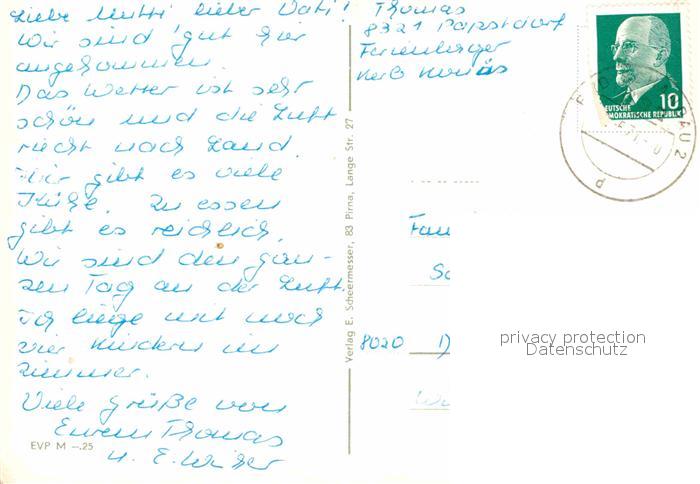 Liebe Mutti lieber Vati!
Wir sind gut hier
angekommen.
Das Wetter ist sehr
schön und die Luft
riecht nach Land.
Hier gibt es viele
Kühe. Zu essen
gibt es reichlich.
Wir sind den gan-
zen Tag an der Luft.
Ich liege mit noch
vier Kindern im
Zimmer.
Viele Grüße von
Eurem Thomas
u. E.
EVP M –.25
Verlag E. Scheermesser, 83 Pirna, Lange Str. 27
Thomas
8321 Papstdorf
Ferienlager
10
DEUTSCHE
DEMOKRATISCHE REPUBLIK
Fam
8020 D
privacy protection
Datenschutz